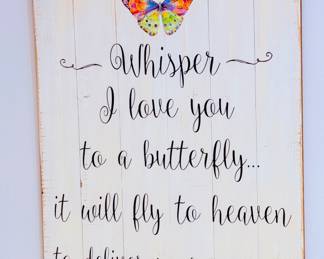 Whisper
I love you
to a butterfly...
it will fly to heaven
to deliver